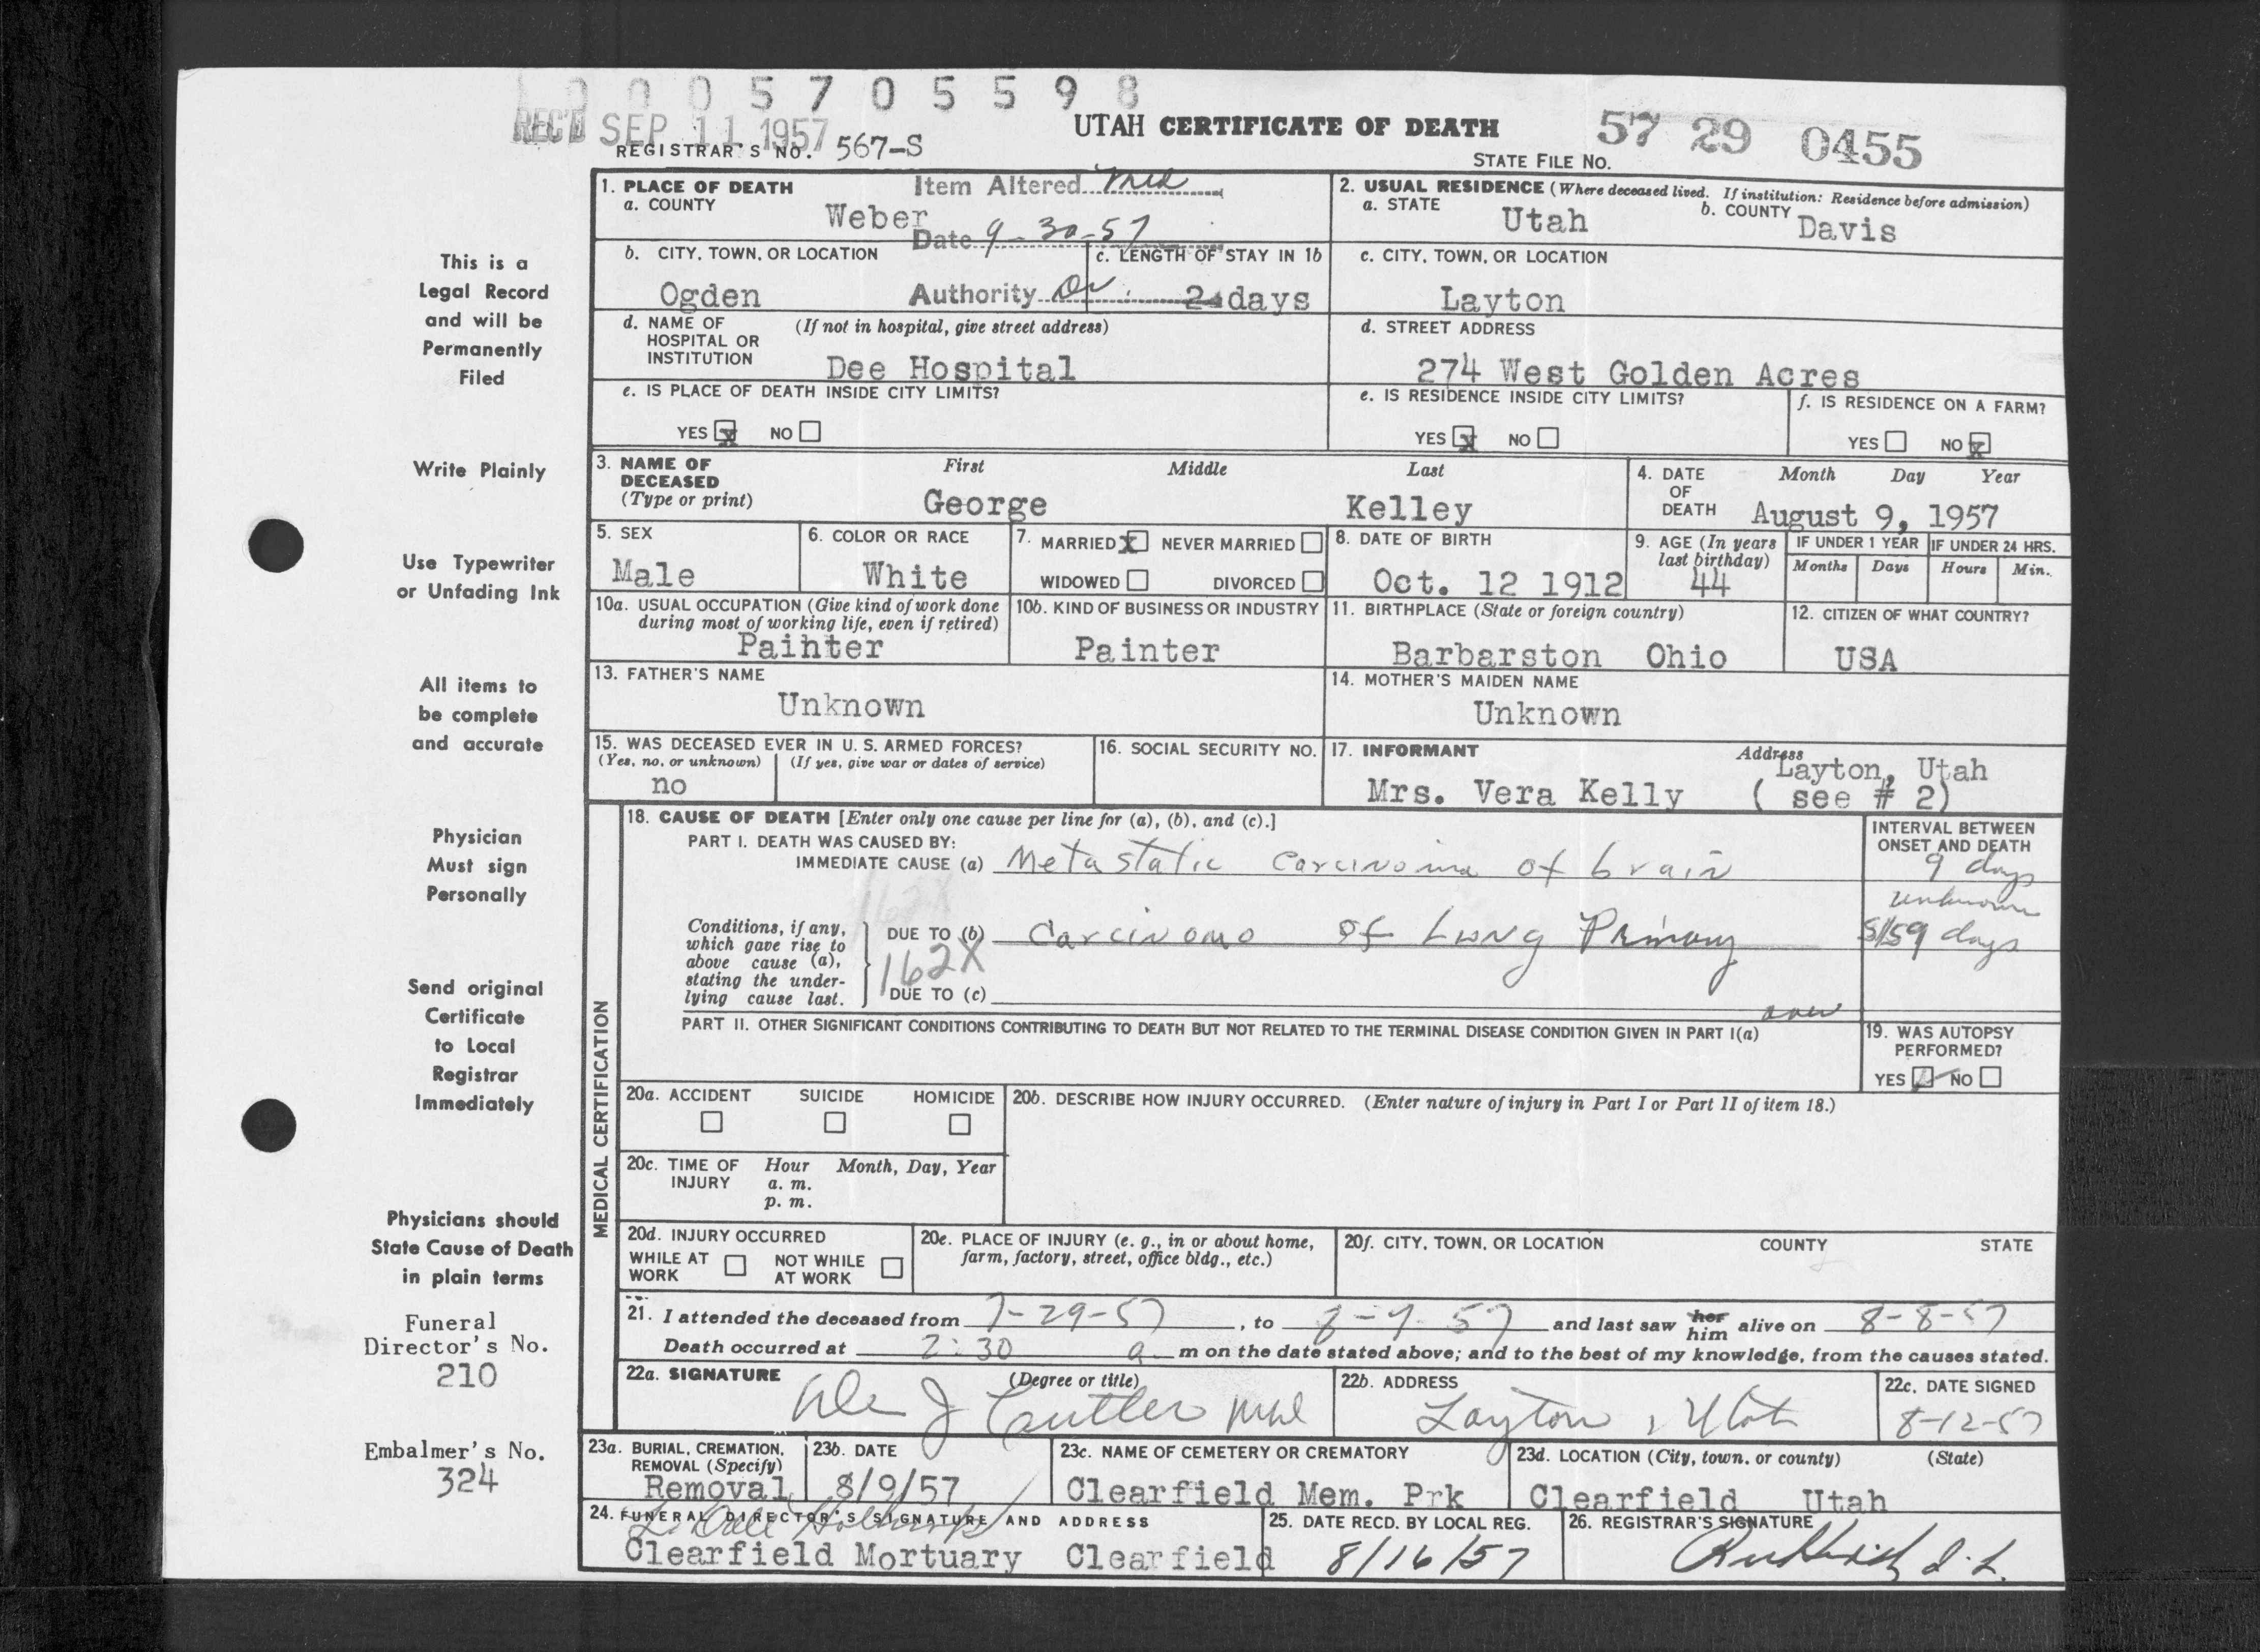 0005705598
REC'D SEP 11 1957
REGISTRAR'S NO. 567-S
UTAH CERTIFICATE OF DEATH
STATE FILE NO. 57 29 0455
This is a
Legal Record
and will be
Permanently
Filed
Write Plainly
Use Typewriter
or Unfading Ink
All items to
be complete
and accurate
Physician
Must sign
Personally
Send original
Certificate
to Local
Registrar
Immediately
Physicians should
State Cause of Death
in plain terms
Funeral
Director's No.
210
Embalmer's No.
324
1. PLACE OF DEATH
a. COUNTY
Weber
Item Altered
Date 9-30-57
Authority
2. USUAL RESIDENCE (Where deceased lived. If institution: Residence before admission)
a. STATE
Utah
b. COUNTY
Davis
b. CITY, TOWN, OR LOCATION
Ogden
c. LENGTH OF STAY IN 1b
2 days
c. CITY, TOWN, OR LOCATION
Layton
d. NAME OF (If not in hospital, give street address)
HOSPITAL OR
INSTITUTION
Dee Hospital
d. STREET ADDRESS
274 West Golden Acres
e. IS PLACE OF DEATH INSIDE CITY LIMITS?
YES x NO
e. IS RESIDENCE INSIDE CITY LIMITS?
YES x NO
f. IS RESIDENCE ON A FARM?
YES NO x
3. NAME OF DECEASED (Type or print)
First Middle Last
George Kelley
4. DATE OF DEATH
Month Day Year
August 9, 1957
5. SEX
Male
6. COLOR OR RACE
White
7. MARRIED x NEVER MARRIED
WIDOWED DIVORCED
8. DATE OF BIRTH
Oct. 12 1912
9. AGE (In years last birthday)
44
IF UNDER 1 YEAR
Months Days
IF UNDER 24 HRS.
Hours Min.
10a. USUAL OCCUPATION (Give kind of work done
during most of working life, even if retired)
Painter
10b. KIND OF BUSINESS OR INDUSTRY
Painter
11. BIRTHPLACE (State or foreign country)
Barbarston Ohio
12. CITIZEN OF WHAT COUNTRY?
USA
13. FATHER'S NAME
Unknown
14. MOTHER'S MAIDEN NAME
Unknown
15. WAS DECEASED EVER IN U. S. ARMED FORCES?
(Yes, no, or unknown) (If yes, give war or dates of service)
no
16. SOCIAL SECURITY NO.
17. INFORMANT
Mrs. Vera Kelly
Address
Layton, Utah
( see # 2)
MEDICAL CERTIFICATION
18. CAUSE OF DEATH [Enter only one cause per line for (a), (b), and (c).]
PART I. DEATH WAS CAUSED BY:
IMMEDIATE CAUSE (a) Metastatic Carcinoma of brain
INTERVAL BETWEEN
ONSET AND DEATH
9 days
unknown
Conditions, if any,
which gave rise to
above cause (a),
stating the under-
lying cause last.
DUE TO (b) Carcinoma of Lung Primary
59 days
162X
DUE TO (c)
over
PART II. OTHER SIGNIFICANT CONDITIONS CONTRIBUTING TO DEATH BUT NOT RELATED TO THE TERMINAL DISEASE CONDITION GIVEN IN PART I(a)
19. WAS AUTOPSY
PERFORMED?
YES NO
20a. ACCIDENT SUICIDE HOMICIDE
20b. DESCRIBE HOW INJURY OCCURRED. (Enter nature of injury in Part I or Part II of item 18.)
20c. TIME OF INJURY
Hour Month, Day, Year
a. m.
p. m.
20d. INJURY OCCURRED
WHILE AT WORK NOT WHILE AT WORK
20e. PLACE OF INJURY (e. g., in or about home,
farm, factory, street, office bldg., etc.)
20f. CITY, TOWN, OR LOCATION COUNTY STATE
21. I attended the deceased from 7-29-57, to 8-9-57 and last saw her him alive on 8-8-57
Death occurred at 2:30 a m on the date stated above; and to the best of my knowledge, from the causes stated.
22a. SIGNATURE (Degree or title)
J Cutler md
22b. ADDRESS
Layton, Utah
22c. DATE SIGNED
8-12-57
23a. BURIAL, CREMATION,
REMOVAL (Specify)
Removal
23b. DATE
8/9/57
23c. NAME OF CEMETERY OR CREMATORY
Clearfield Mem. Prk
23d. LOCATION (City, town, or county) (State)
Clearfield Utah
24. FUNERAL DIRECTOR'S SIGNATURE AND ADDRESS
Clearfield Mortuary Clearfield
25. DATE RECD. BY LOCAL REG.
8/16/57
26. REGISTRAR'S SIGNATURE